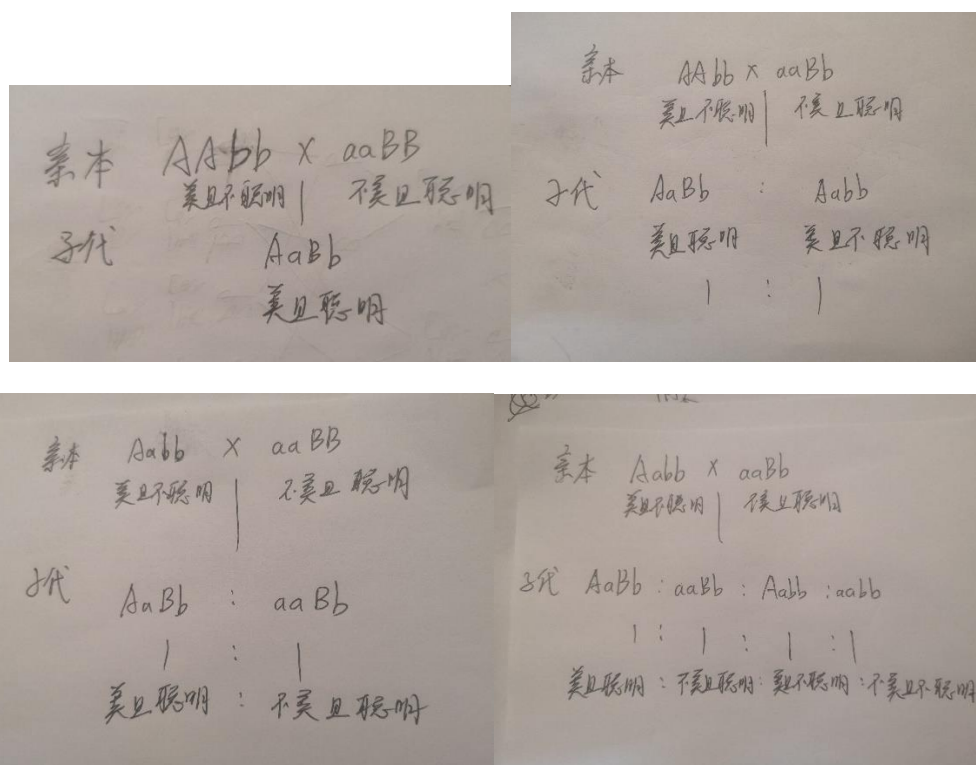 亲本 AAbb × aaBB
美且不聪明 不美且聪明
子代 AaBb
美且聪明
亲本 AAbb × aaBb
美且不聪明 不美且聪明
子代 AaBb : Aabb
美且聪明 美且不聪明
1 : 1
亲本 Aabb × aaBB
美且不聪明 不美且聪明
子代 AaBb : aaBb
1 : 1
美且聪明 : 不美且聪明
亲本 Aabb × aaBb
美且不聪明 不美且聪明
子代 AaBb : aaBb : Aabb : aabb
1 : 1 : 1 : 1
美且聪明 : 不美且聪明 : 美且不聪明 : 不美且不聪明